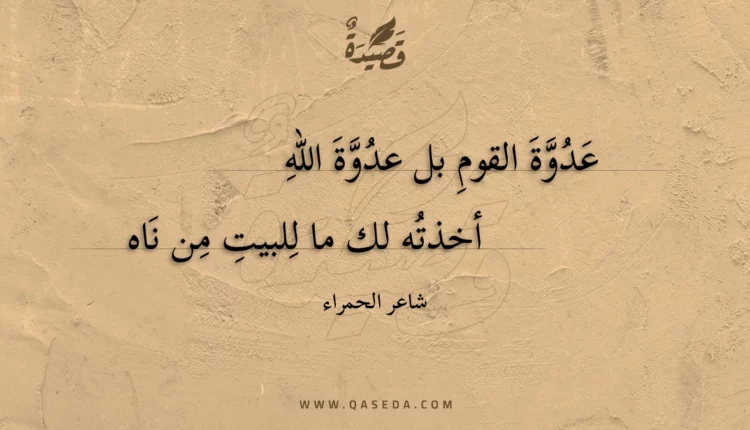 قَصِيْدَةٌ
عَدُوَّةَ القومِ بل عدُوَّةَ اللهِ
أخذتُه لك ما لِلبيتِ مِن نَاه
شاعر الحمراء
WWW.QASEDA.COM